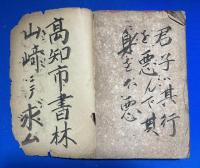 君子ハ其行
を悪んで其
身を不悪
高知市書林
山崎ニテ求ム